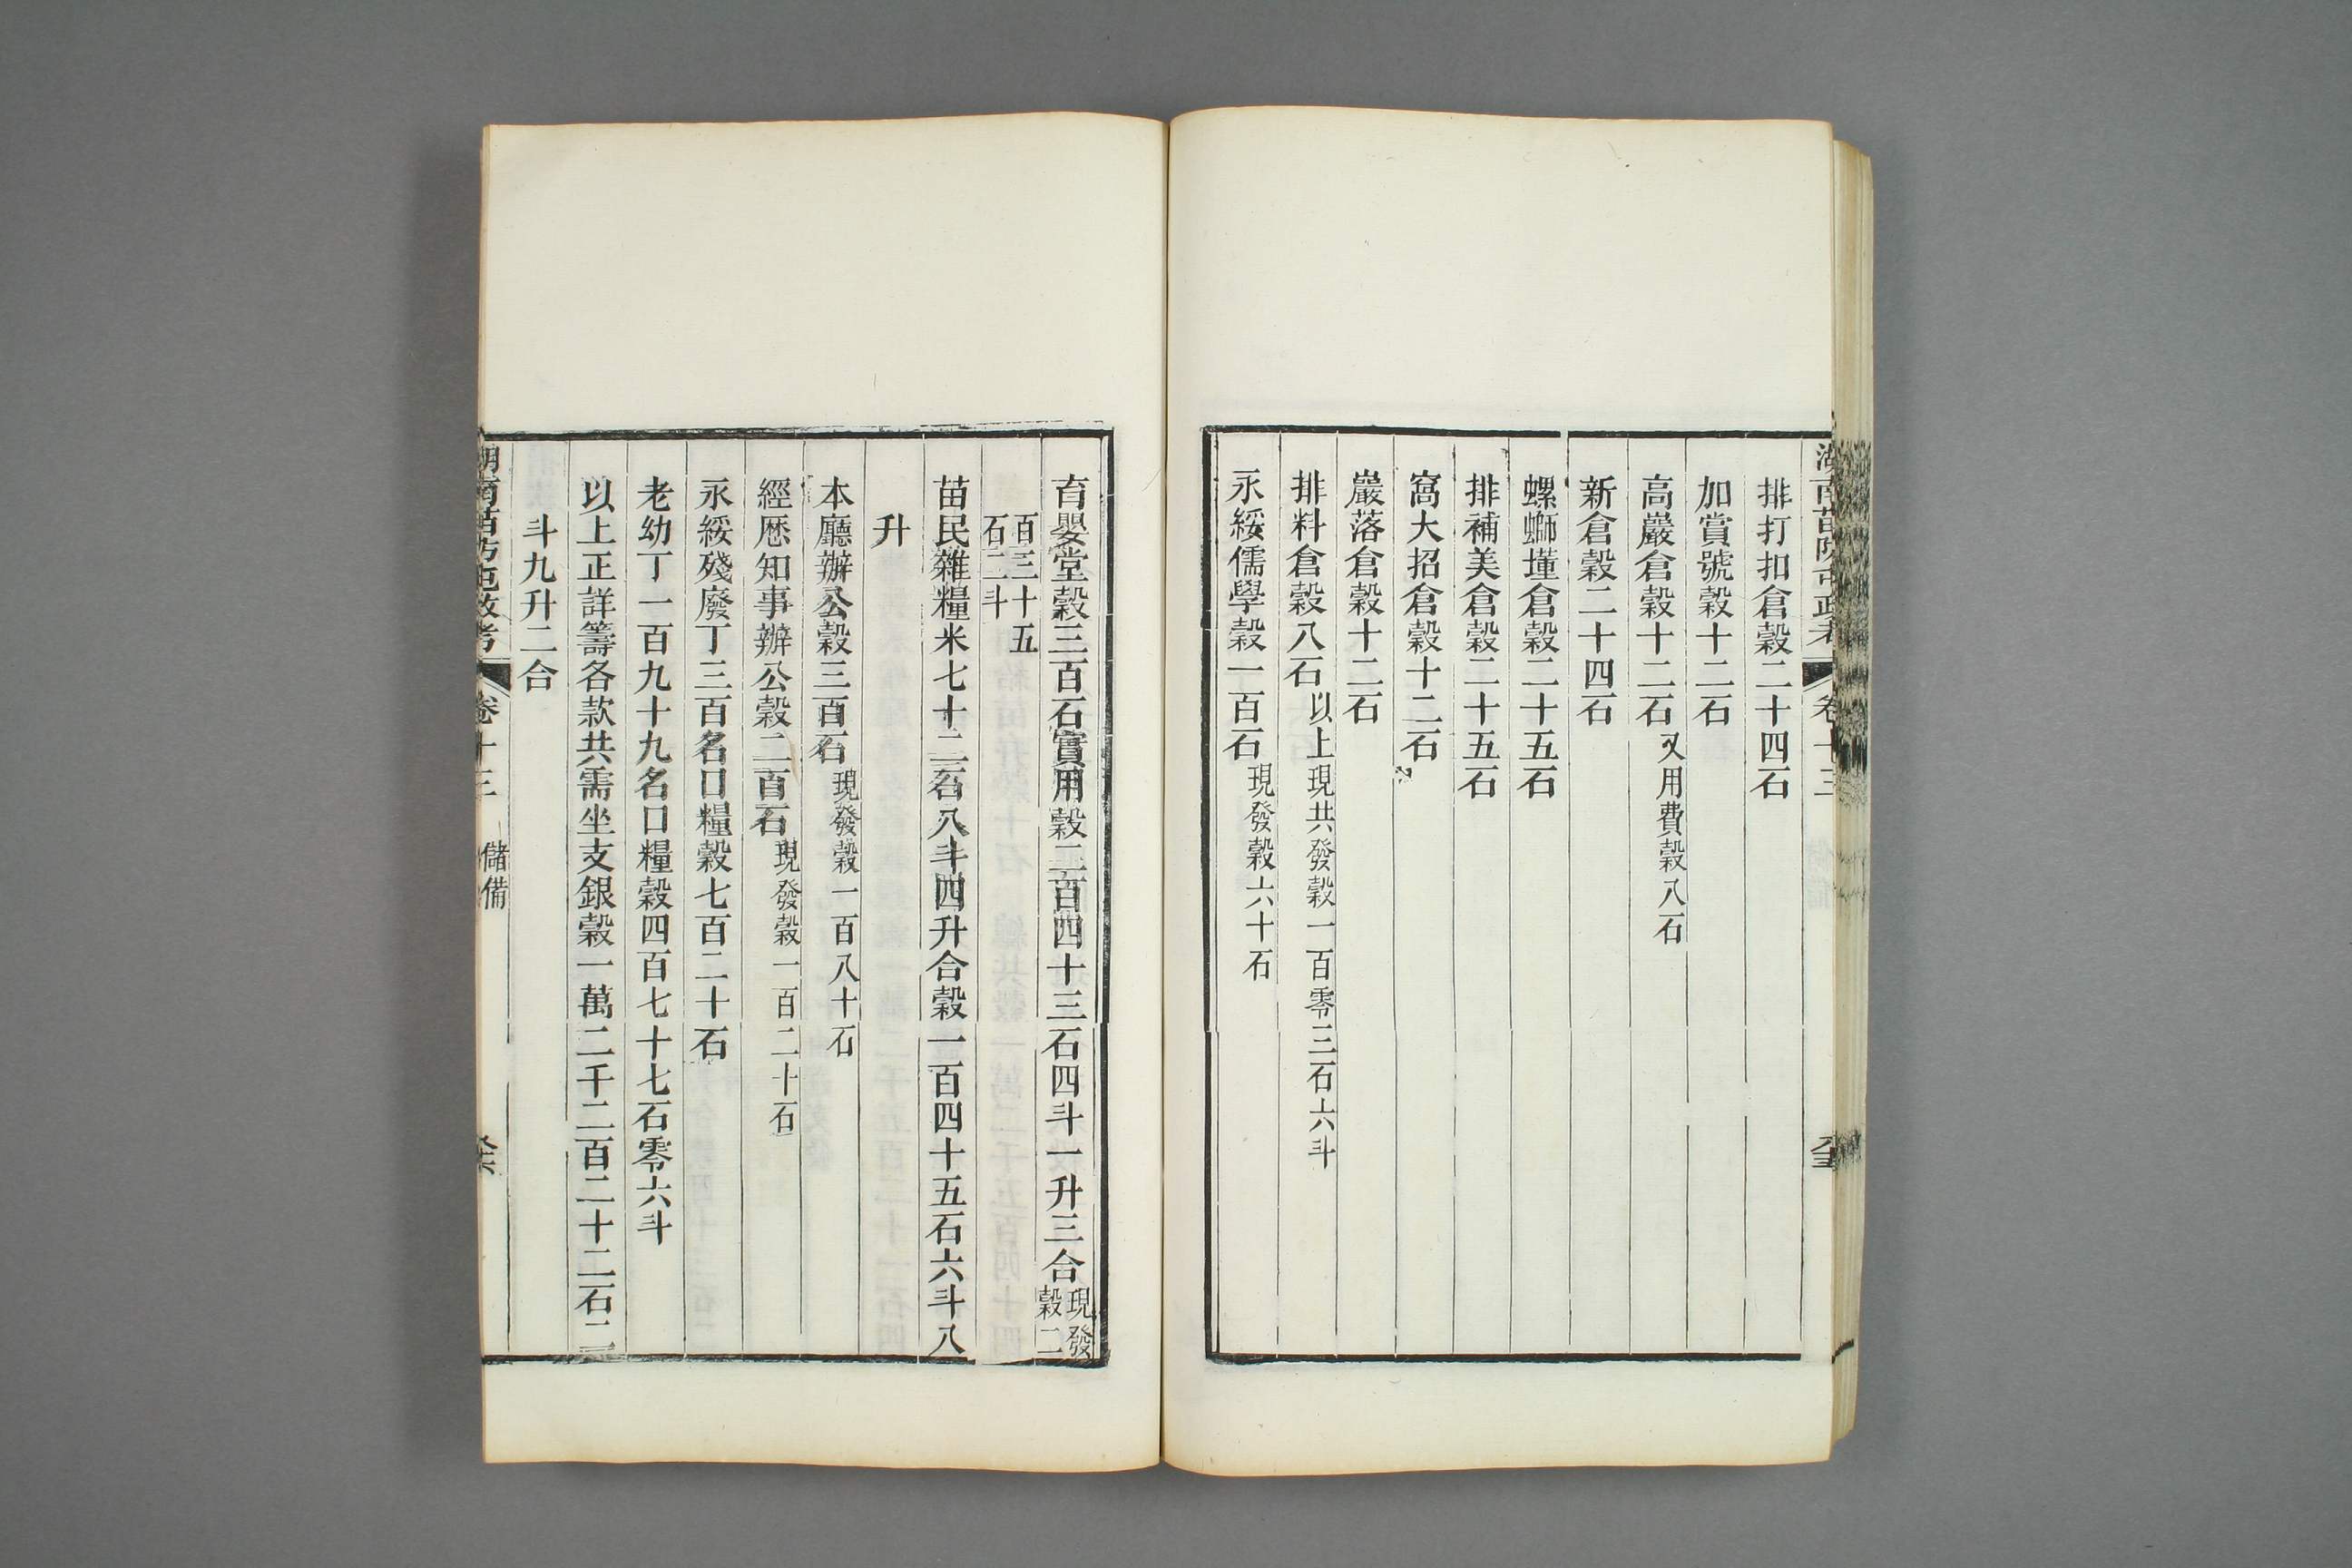 湖南苗防屯政考 卷十三
排打扣倉穀二十四石
加賞號穀十二石
高巖倉穀十二石又用費穀八石
新倉穀二十四石
螺螄墐倉穀二十五石
排補美倉穀二十五石
窩大招倉穀十二石
巖落倉穀十二石
排料倉穀八石以上現共發穀一百零三石六斗
永綏儒學穀一百石現發穀六十石
育嬰堂穀三百石實用穀二百四十三石四斗一升三合現發穀二
百三十五石二斗
苗民雜糧米七十二石八斗四升合穀一百四十五石六斗八
升
本廳辦公穀三百石現發穀一百八十石
經厯知事辦公穀二百石現發穀一百二十石
永綏殘廢丁三百名口糧穀七百二十石
老幼丁一百九十九名口糧穀四百七十七石零六斗
以上正詳籌各款共需坐支銀穀一萬二千二百二十二石二
斗九升二合
湖南苗防屯政考 卷十三 儲備